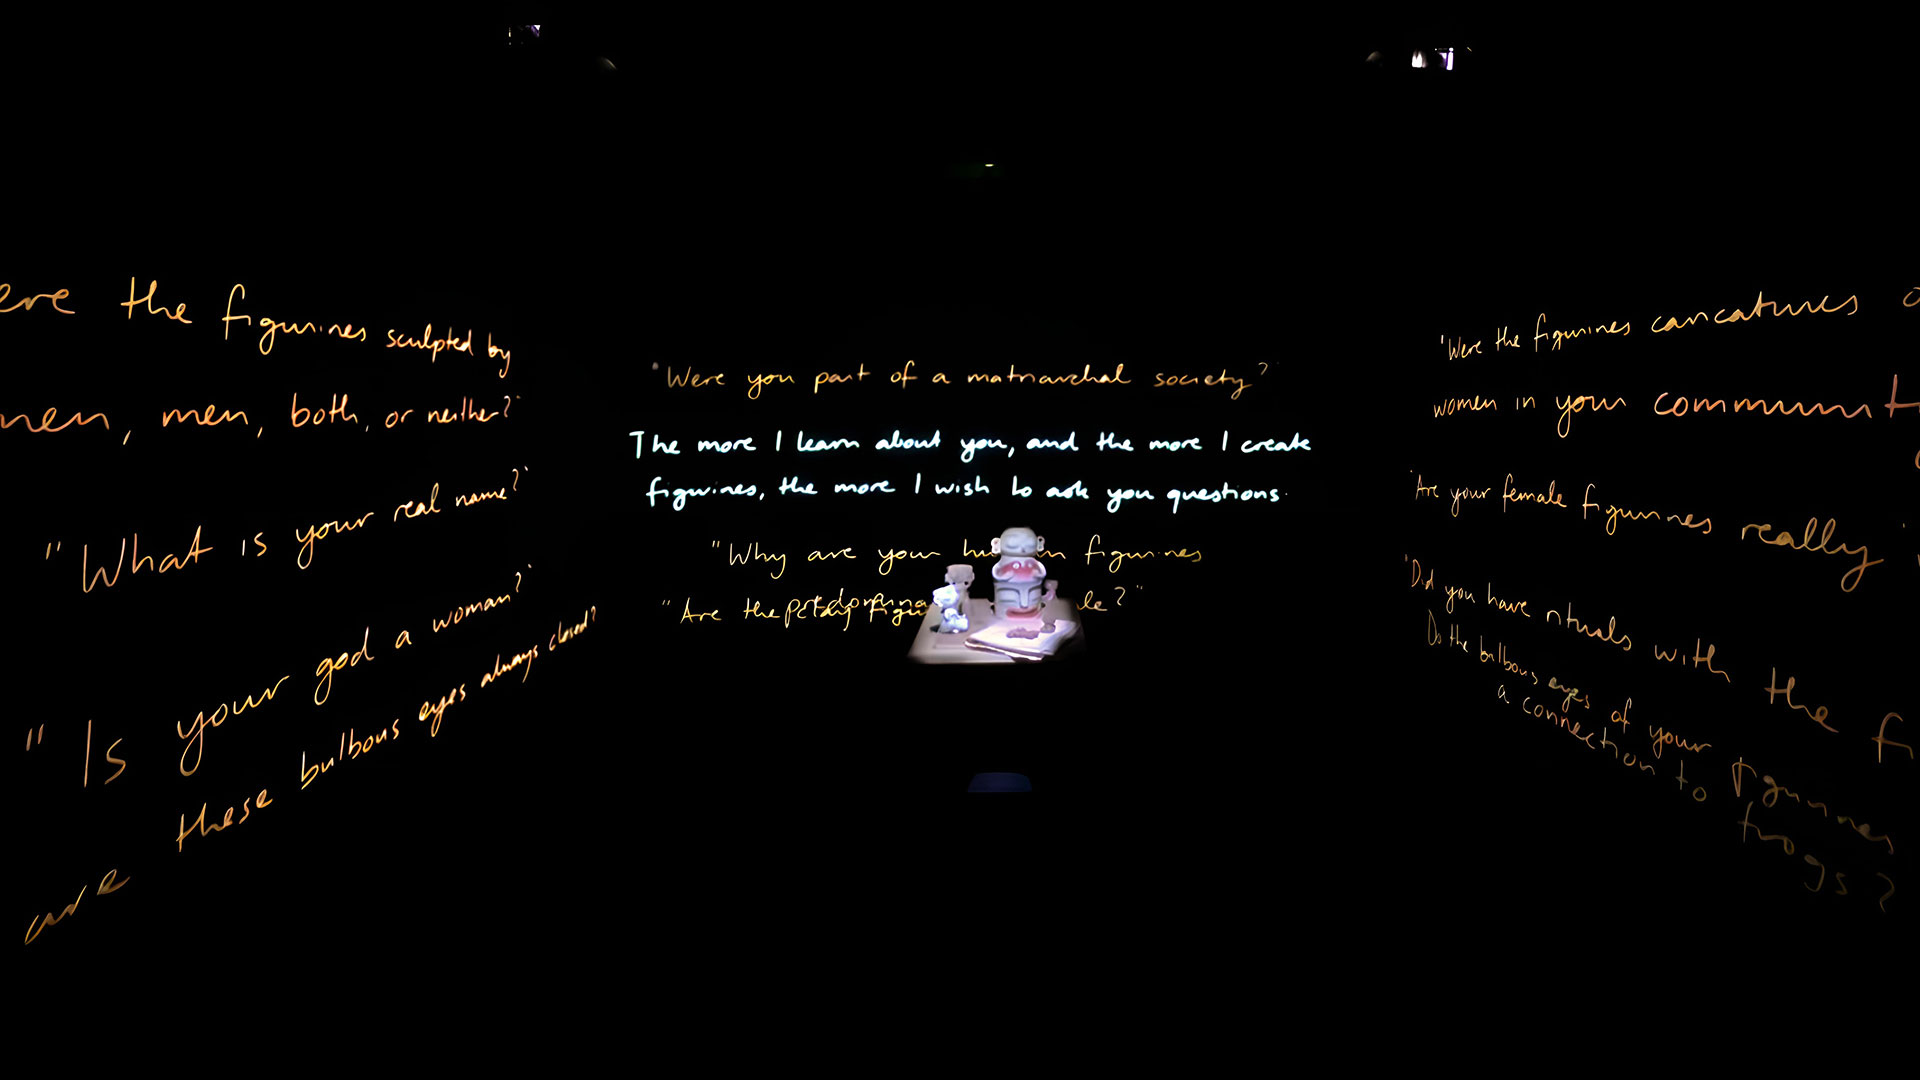 ere the figurines sculpted by
men, men, both, or neither?"
"What is your real name?"
"Is your god a woman?"
are these bulbous eyes always closed?
"Were you part of a matriarchal society?"
The more I learn about you, and the more I create
figurines, the more I wish to ask you questions.
"Why are your human figurines
"Are the
"
"Were the figurines caricatures o
women in your communit
"Are your female figurines really
"Did you have rituals with the fi
Do the bulbous eyes of your figurines
a connection to frogs?